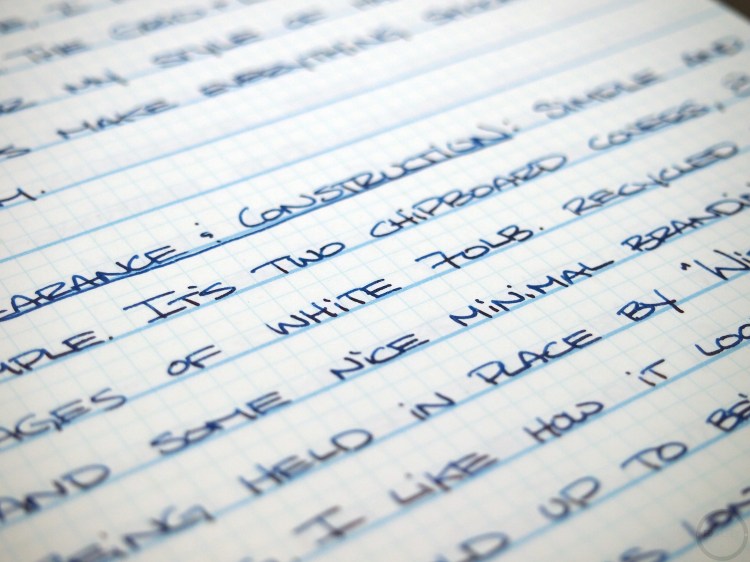 E, I
THE
MY STYLE OF
MAKE EVERYTHING
EARANCE & CONSTRUCTION: SIMPLE AND
MPLE. IT'S TWO CHIPBOARD COVERS,
AGES OF WHITE 70LB. RECYCLED
AND SOME NICE MINIMAL BRANDIN
BEING HELD IN PLACE BY "WI
I LIKE HOW IT LOO
LD UP TO BEI